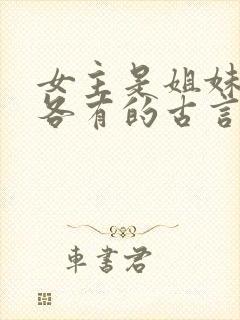 女主是姐妹
各有的古言
車書君